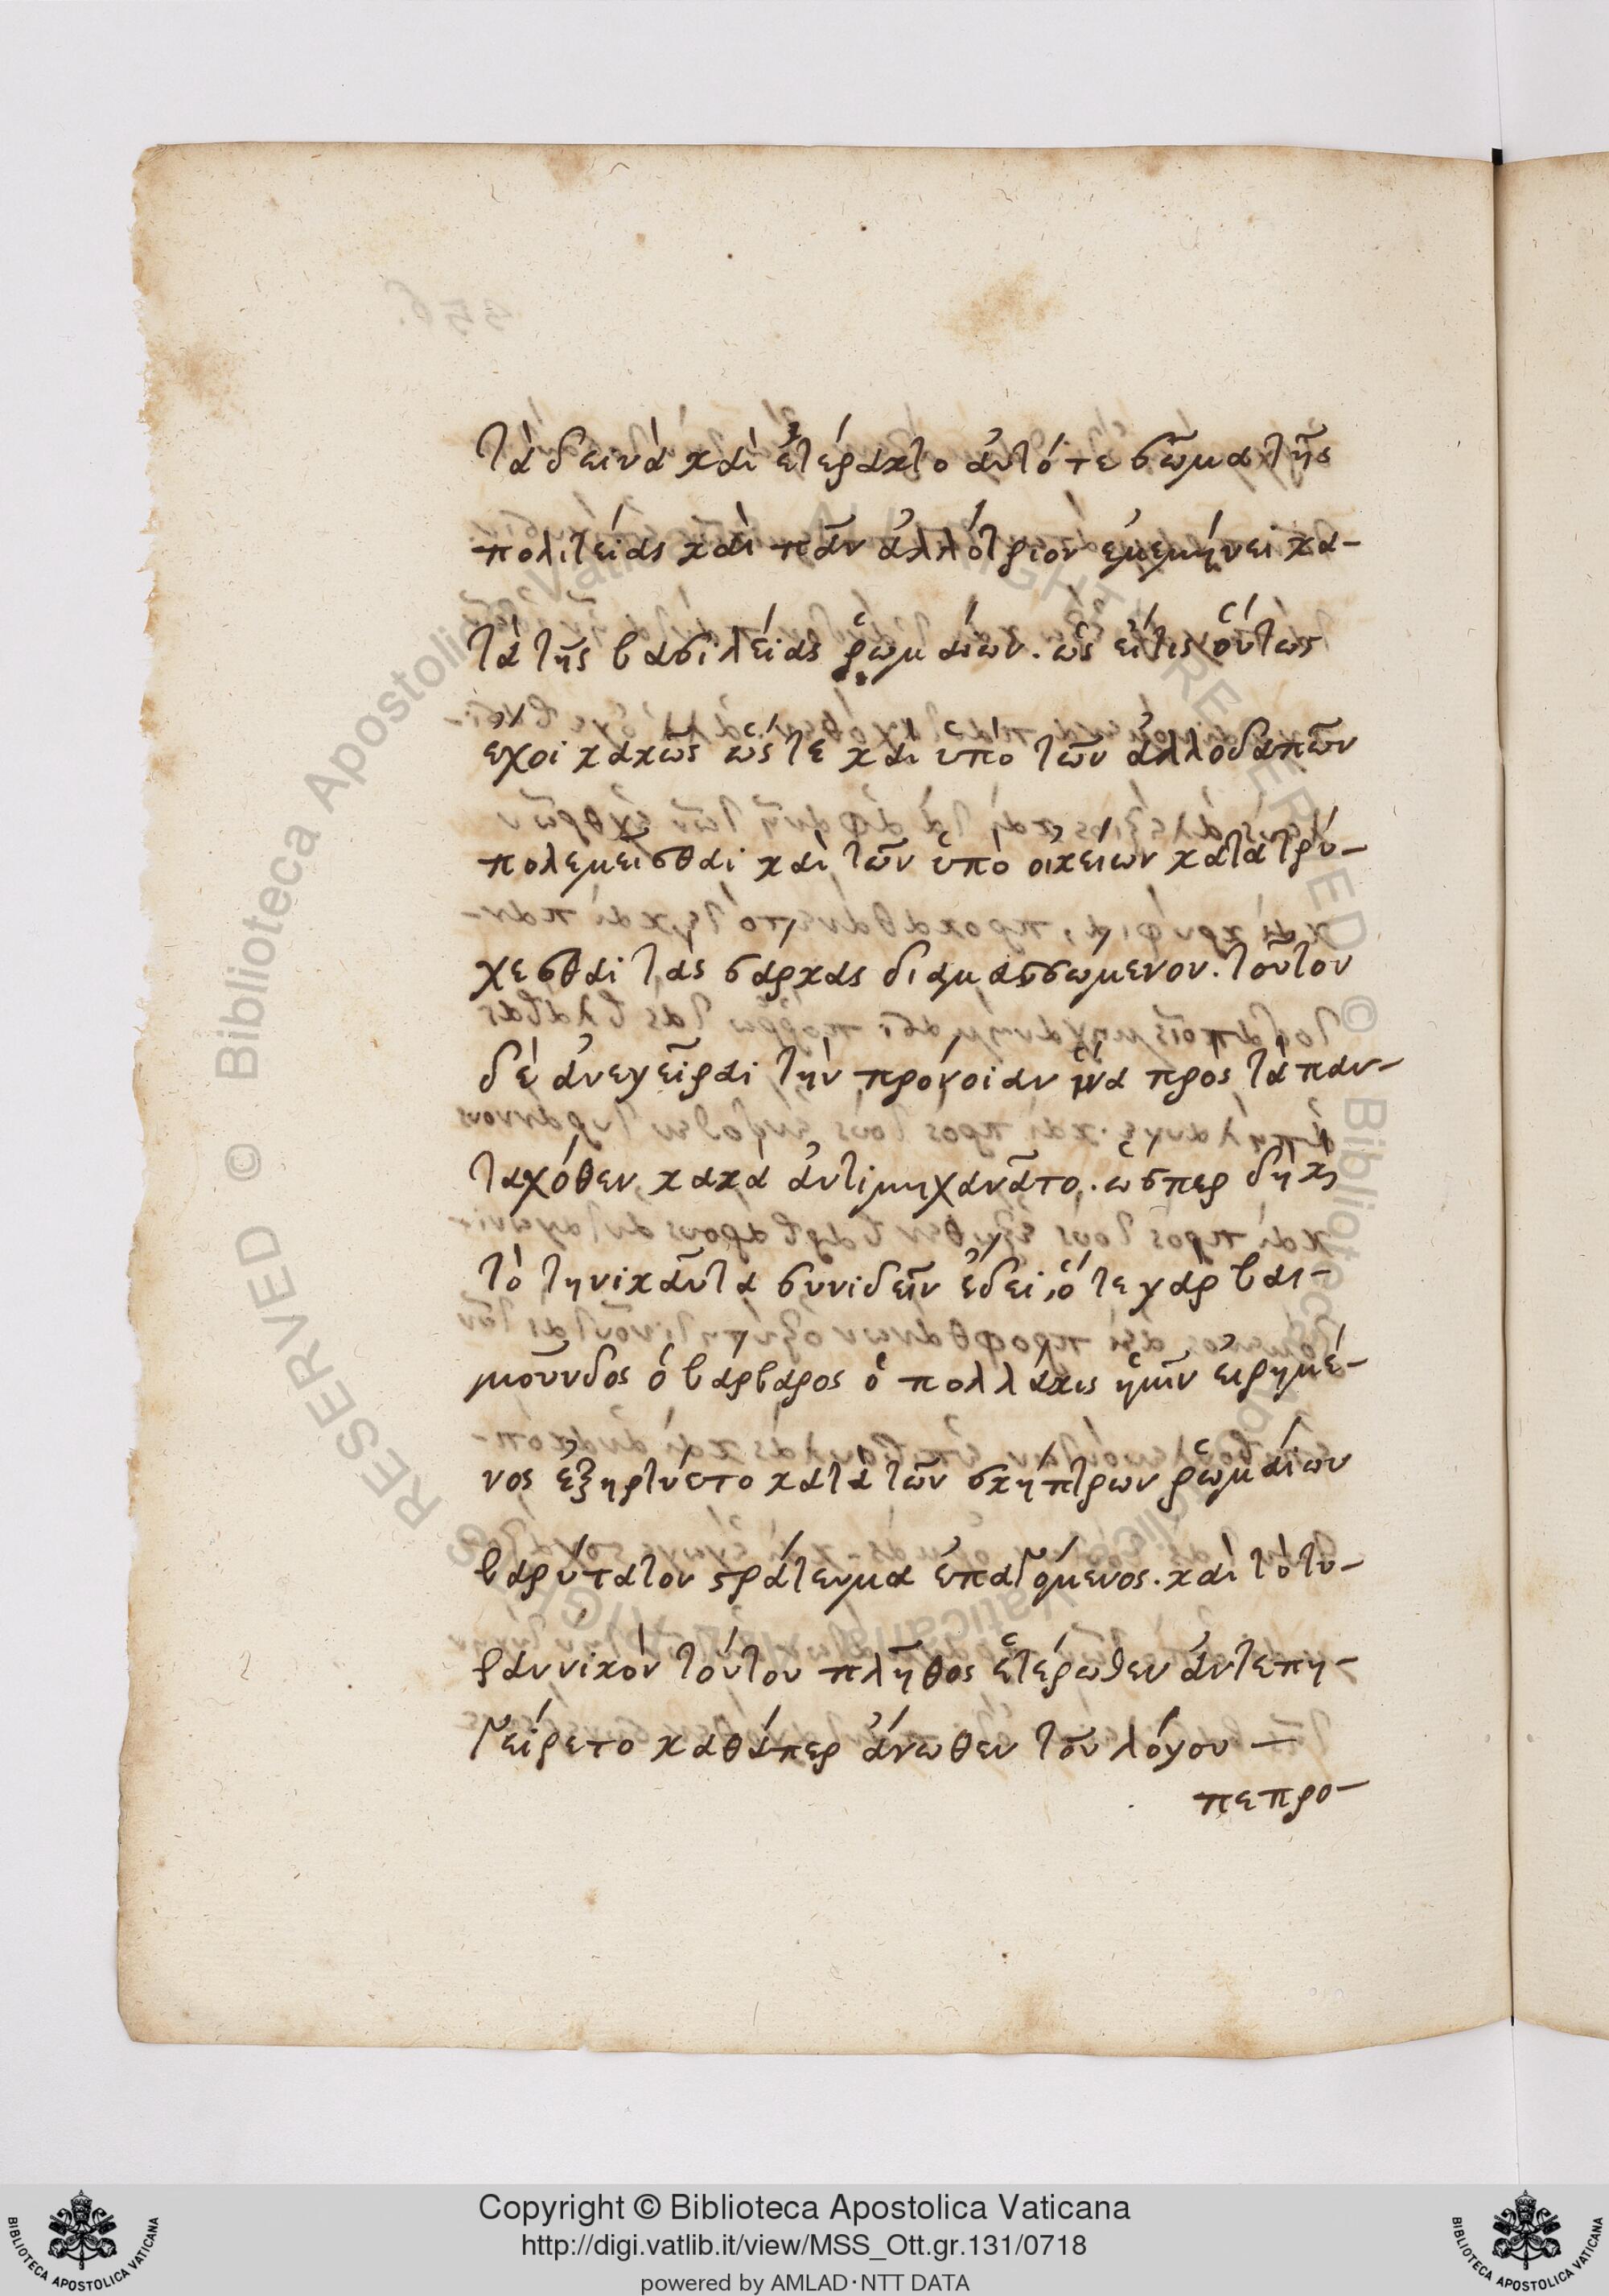 τὰ δεινὰ καὶ ἐτέρακτο ἀυτό τε σῶμα τῆς
πολιτείας καὶ πᾶν ἀλλότριον ἐμεμήνει κα-
τὰ τῆς βασιλείας ῥωμαίων. ὡς εἴτις οὕτως
ἔχοι κακῶς ὥς τε καὶ ὑπὸ τῶν ἀλλοδαπῶν
πολεμεῖσθαι καὶ τῶν ὑπὸ οἰκείων κατατρύ-
χεσθαι τὰς σάρκας διαμασσώμενον. τοῦτον
δὲ ἀνεγεῖραι τὴν πρόνοιαν ἵνα πρὸς τὰ παν-
ταχόθεν κακὰ ἀντιμηχανᾶτο. ὥσπερ δὴ κ̀
τὸ τηνικαῦτα συνιδεῖν ἔδει, ὅ τε γὰρ βαι-
μοῦνδος ὁ βάρβαρος ὁ πολλάκις ἡμῖν εἰρημέ-
νος ἐξηρτύετο κατὰ τῶν σκήπτρων ῥωμαίων
βαρύτατον στράτευμα ἐπαγόμενος. καὶ τὸ τυ-
ραννικὸν τοῦτον πλῆθος ἑτέρωθεν ἀντεπη-
γείρετο καθάπερ ἄνωθεν τοῦ λόγου —
πεπρο-
Copyright © Biblioteca Apostolica Vaticana
http://digi.vatlib.it/view/MSS_Ott.gr.131/0718
powered by AMLAD·NTT DATA
BIBLIOTECA APOSTOLICA VATICANA
BIBLIOTECA APOSTOLICA VATICANA